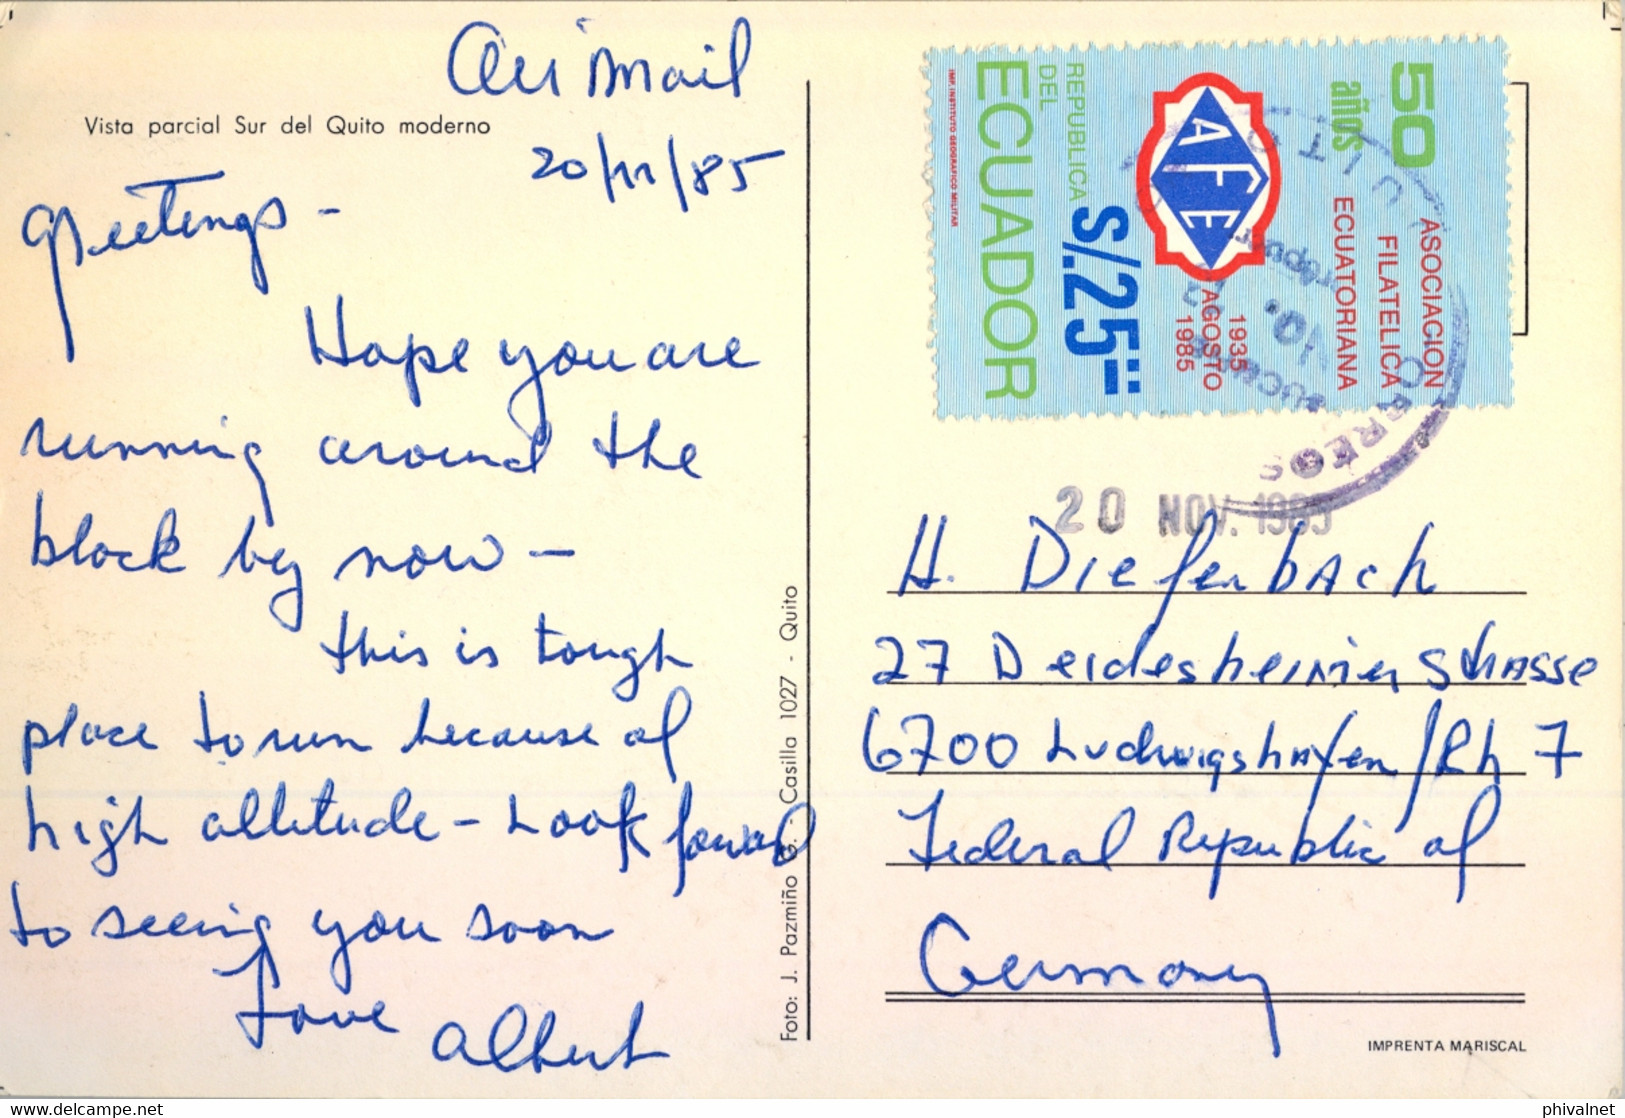 Air Mail
Vista parcial Sur del Quito moderno
20/11/85
Greetings -
Hope you are
running around the
block by now -
this is tough
place to run because of
high altitude - Look forward
to seeing you soon
Love
Albert
Foto: J. Pazmiño G. Casilla 1027 - Quito
50
años
ASOCIACION
FILATELICA
ECUATORIANA
AFE
1935
AGOSTO
1985
S/.25
REPUBLICA
DEL
ECUADOR
IMP. INSTITUTO GEOGRAFICO MILITAR
CORREOS
QUITO
20 NOV. 1985
H. Diefenbach
27 Deidesheimer Strasse
6700 Ludwigshafen/Rh 7
Federal Republic of
Germany
IMPRENTA MARISCAL
delcampe.net
phivalnet